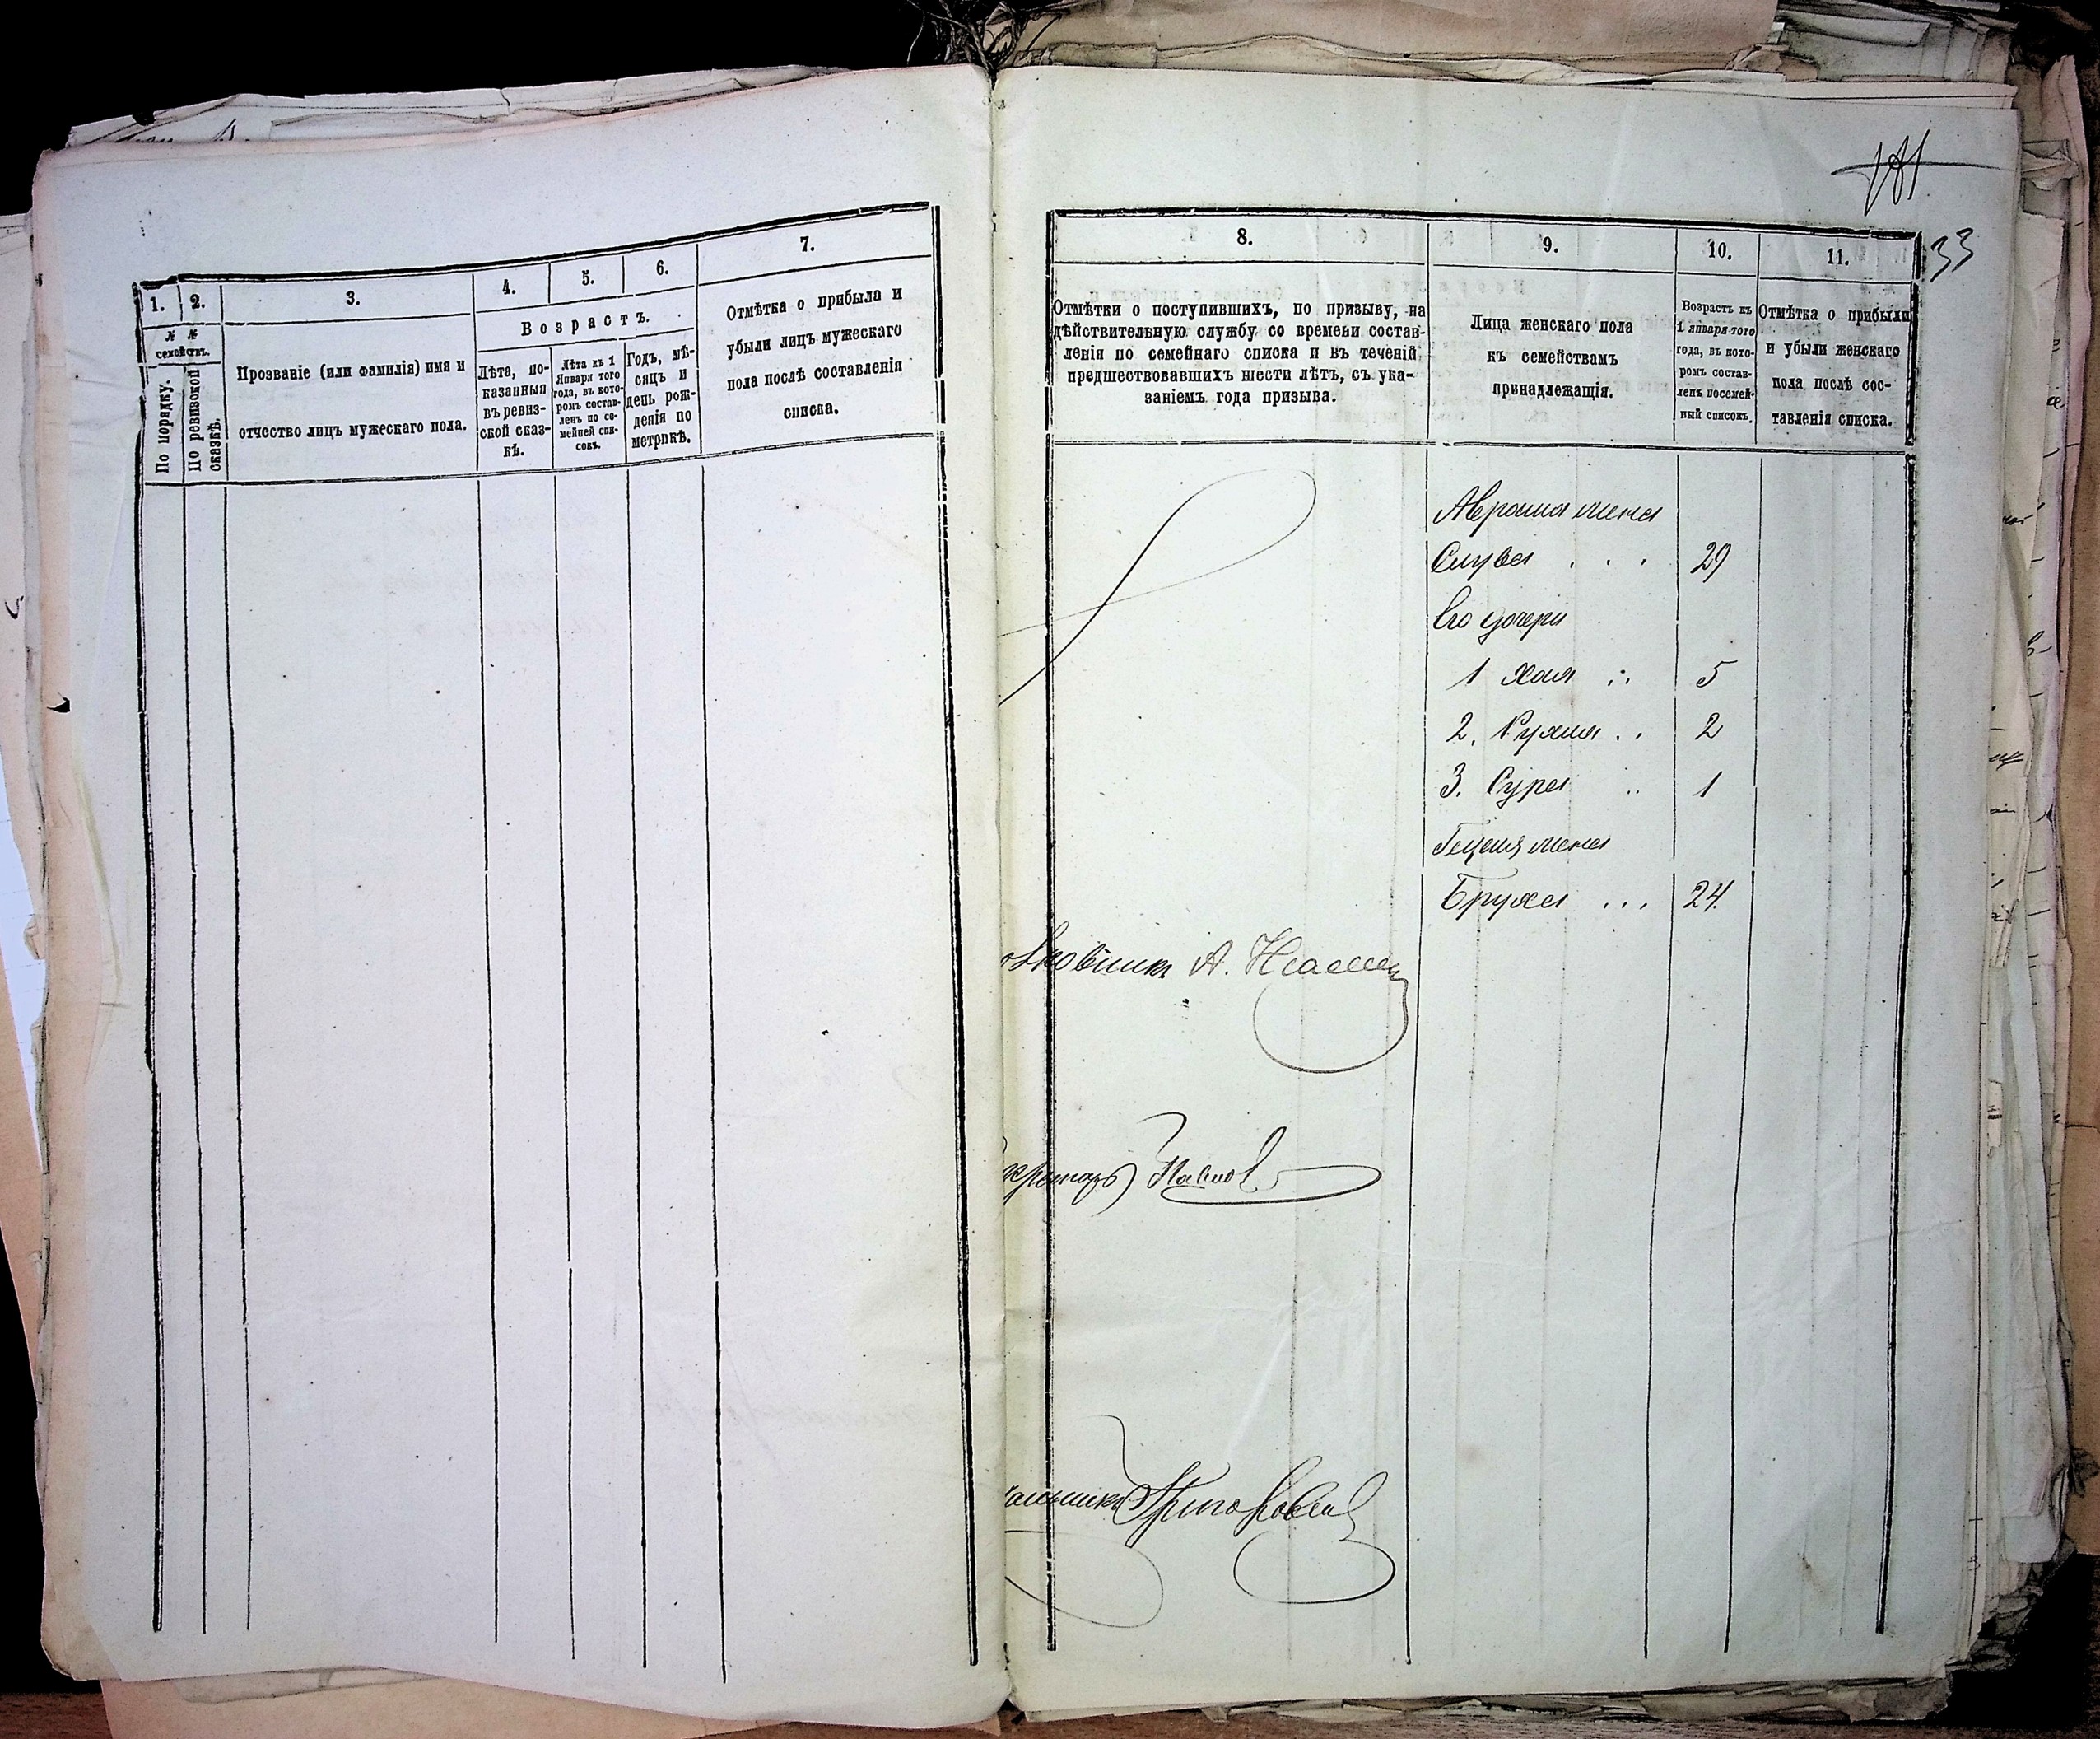 181
33
1.
2.
3.
4.
5.
6.
7.
№ №
семействъ.
По порядку.
По ревизской
сказкѣ.
Прозваніе (или фамилія) имя и
отчество лицъ мужескаго пола.
Возрастъ.
Лѣта, по-
казанныя
въ ревиз-
ской сказ-
кѣ.
Лѣта къ 1
Января того
года, въ кото-
ромъ состав-
ленъ по се-
мейней спи-
сокъ.
Годъ, мѣ-
сяцъ и
день рож-
денія по
метрикѣ.
Отмѣтка о прибыла и
убыли лицъ мужескаго
пола послѣ составленія
списка.
8.
9.
10.
11.
Отмѣтки о поступившихъ, по призыву, на
дѣйствительную службу со времени состав-
ленія по семейнаго списка и въ теченій
предшествовавшихъ шести лѣтъ, съ ука-
заніемъ года призыва.
Лица женскаго пола
къ семействамъ
принадлежащія.
Возрастъ къ
1 января того
года, въ кото-
ромъ состав-
ленъ посемей-
ный списокъ.
Отмѣтка о прибыли
и убыли женскаго
пола послѣ сос-
тавленія списка.
Аврама жена
Слува . . . 29
Его дочери
1 Хая . . 5
2. Рухля . . 2
3. Сура .. 1
Гецеля жена
Бруха ... 24
овникъ А.
кретарь
альникъ